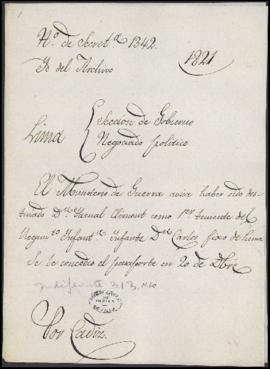 N.º de Secret.ª 1342.
Yd del Archivo
1821
Lima
Seccion de Gobierno
Negociado politico
El Ministerio de Guerra avisa haber sido des-
tinado D.n Manuel Clemont como 1er teniente del
Regim.to Infant.a Infante D.n Carlos fixo de Lima
Se le concedio el pasaporte en 20 de Dbre
Indiferente 313, N.10
Por Cadiz.